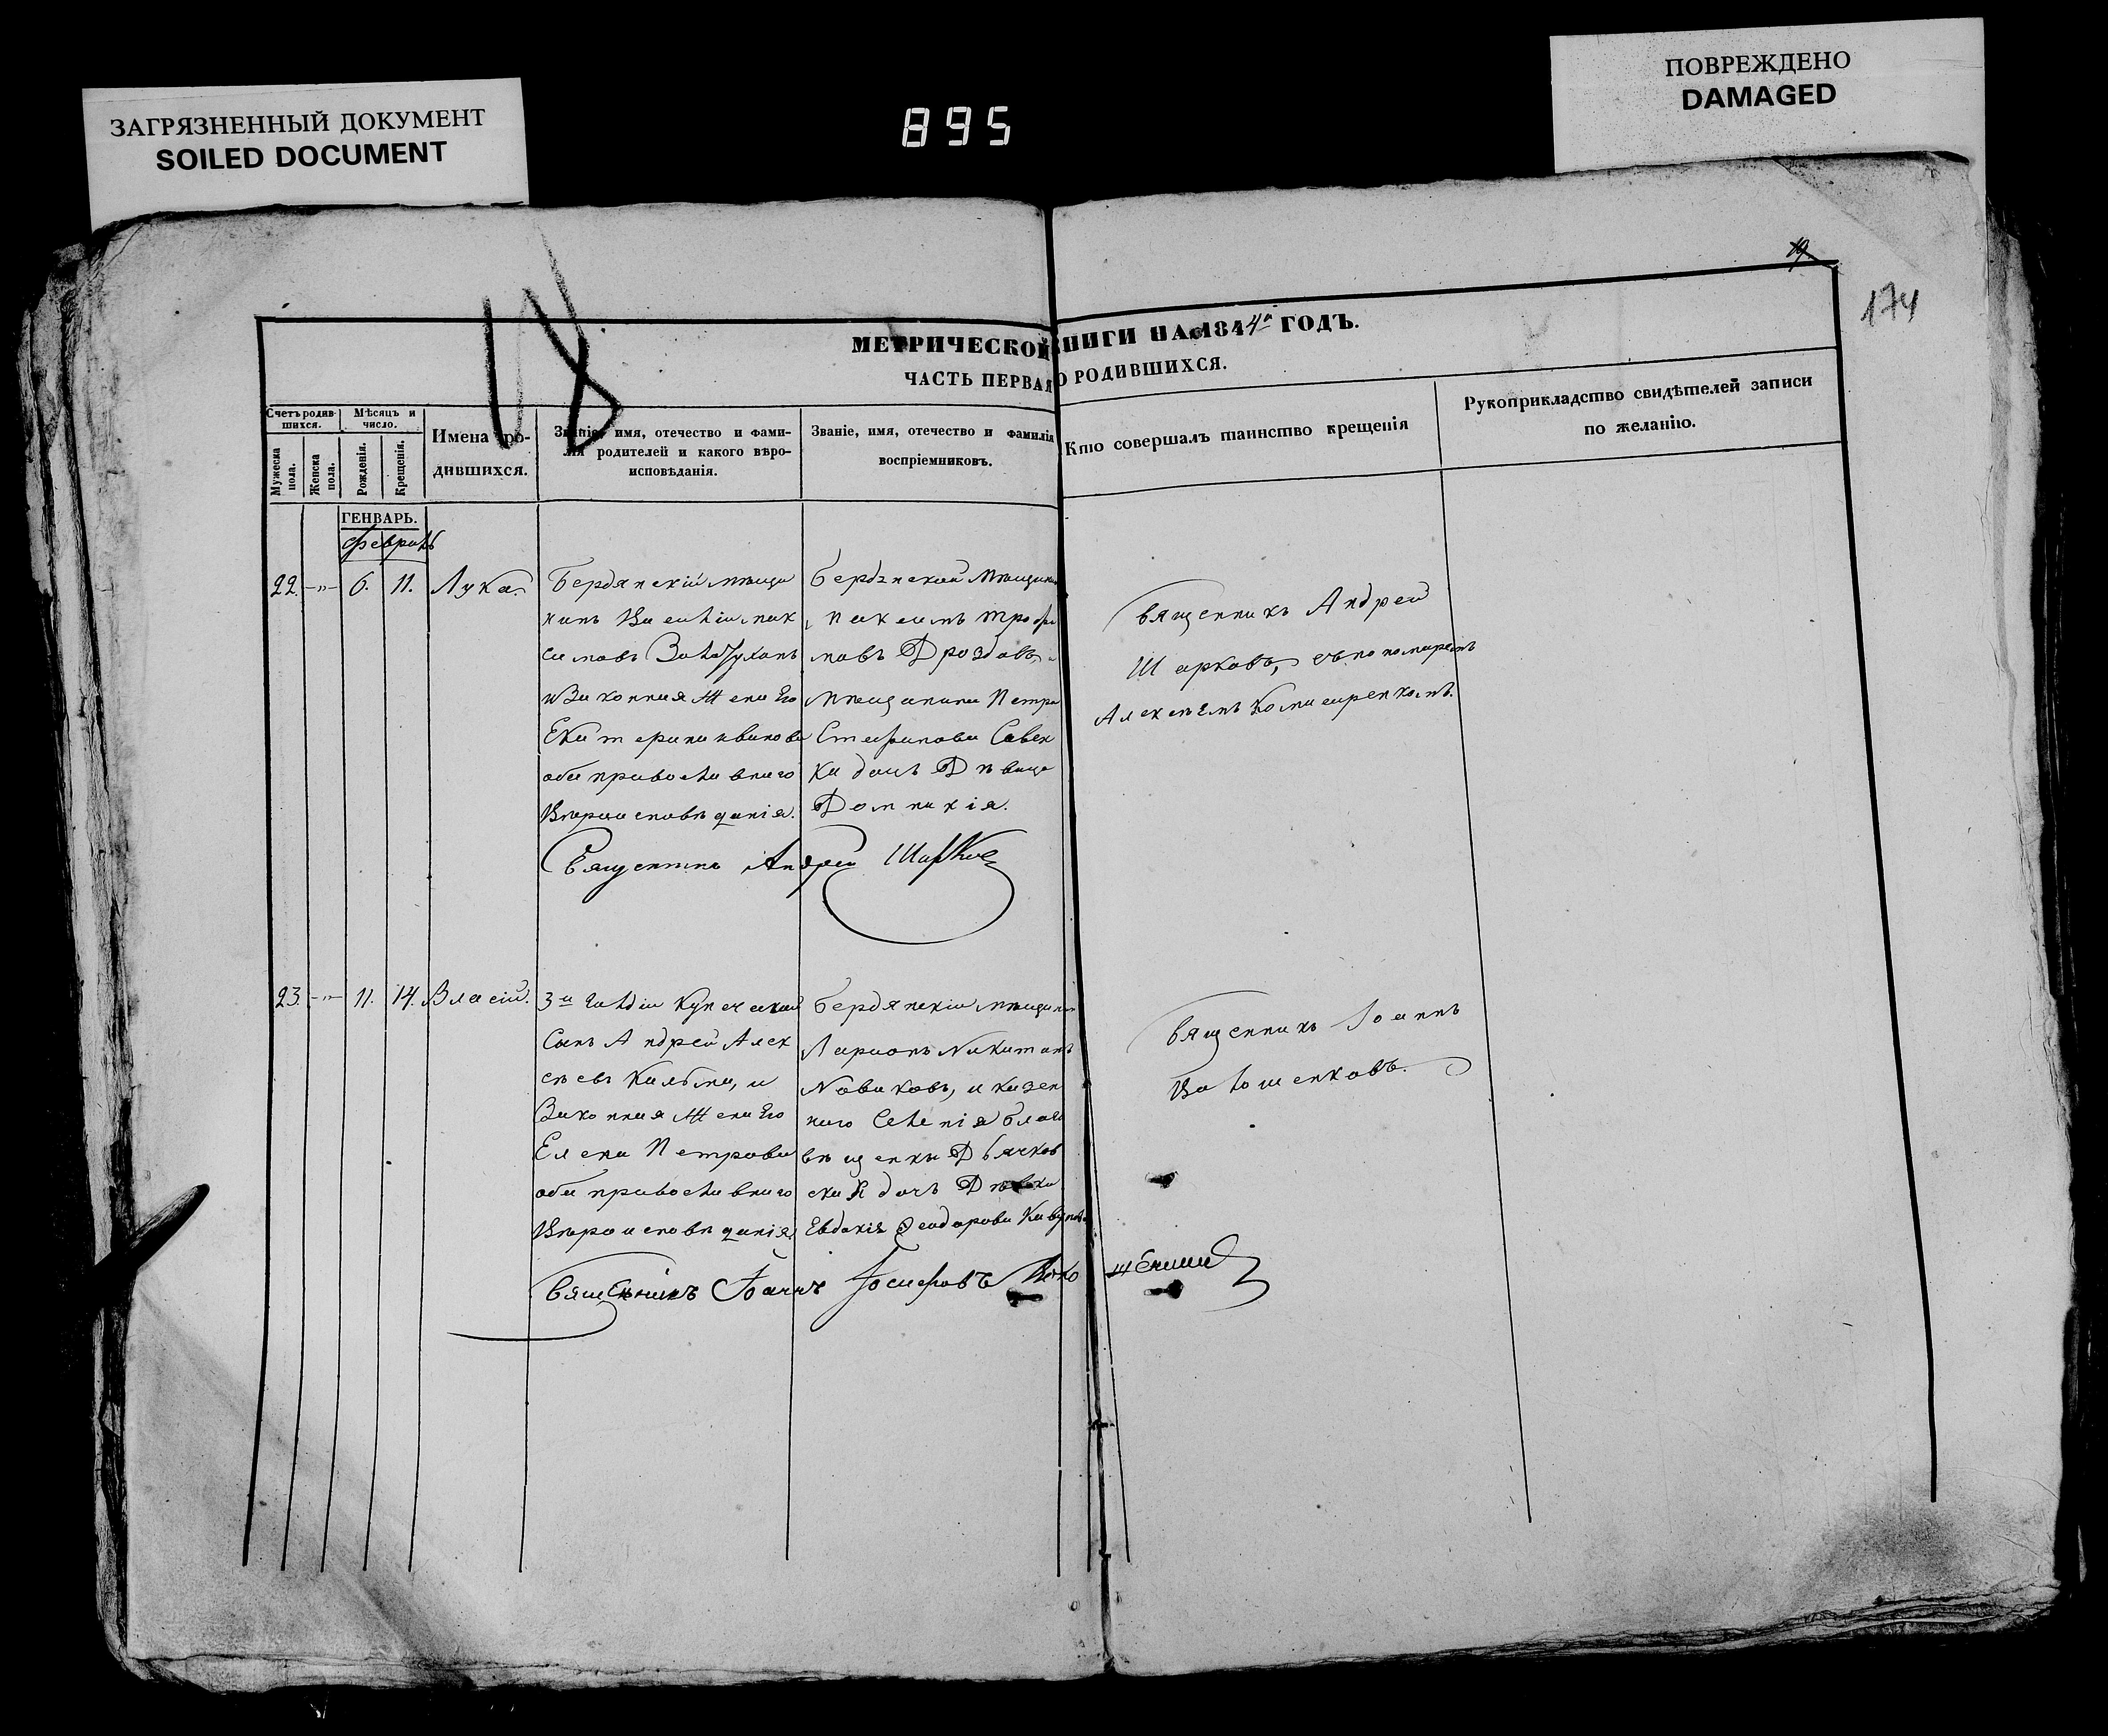 ЗАГРЯЗНЕННЫЙ ДОКУМЕНТ
SOILED DOCUMENT
895
ПОВРЕЖДЕНО
DAMAGED
19
174
18
МЕТРИЧЕСКОЙ КНИГИ НА 1844й ГОДЪ.
ЧАСТЬ ПЕРВАЯ О РОДИВШИХСЯ.
Счетъ родив-
шихся.
Мѣсяцъ и
число.
Мужеска пола.
Женска пола.
Рожденія.
Крещенія.
Имена ро-
дившихся.
Званіе, имя, отечество и фами-
лія родителей и какого вѣро-
исповѣданія.
Званіе, имя, отечество и фамилія
воспріемниковъ.
Кто совершалъ таинство крещенія
Рукоприкладство свидѣтелей записи
по желанію.
ГЕНВАРЬ.
Февраль
22. -"- 6. 11. Лука.
Бердянскій мѣща
нинъ Василій Мак
симовъ
и Законная Жена Его
Екатерина
оба православнаго
Вѣроисповѣданія.
Бердянскій Мѣщанинъ
Максимъ Трофи
мовъ Дроздовъ, и
Мѣщанина Петра
Стефанова Савен
ка дочь Дѣвица
Домникія.
Священникъ Андрей
Шарковъ, съ пономаремъ
Алексѣемъ
Священникъ Андрей Шарковъ
23. -"- 11. 14. Власій.
3й Гильдіи Купеческій
Сынъ Андрей Алек
сѣевъ и
Законная Жена Его
Елена Петрова
оба православнаго
Вѣроисповѣданія
Бердянскій мѣщанинъ
Ларіонъ Никитинъ
Новиковъ, и казен
наго Селенія Благо
вѣщенки Дьячков
ская дочь Дѣвка
Евдокія Феодорова
Священникъ Іоаннъ
Волошенковъ.
Священникъ Іоаннъ Іосифовъ